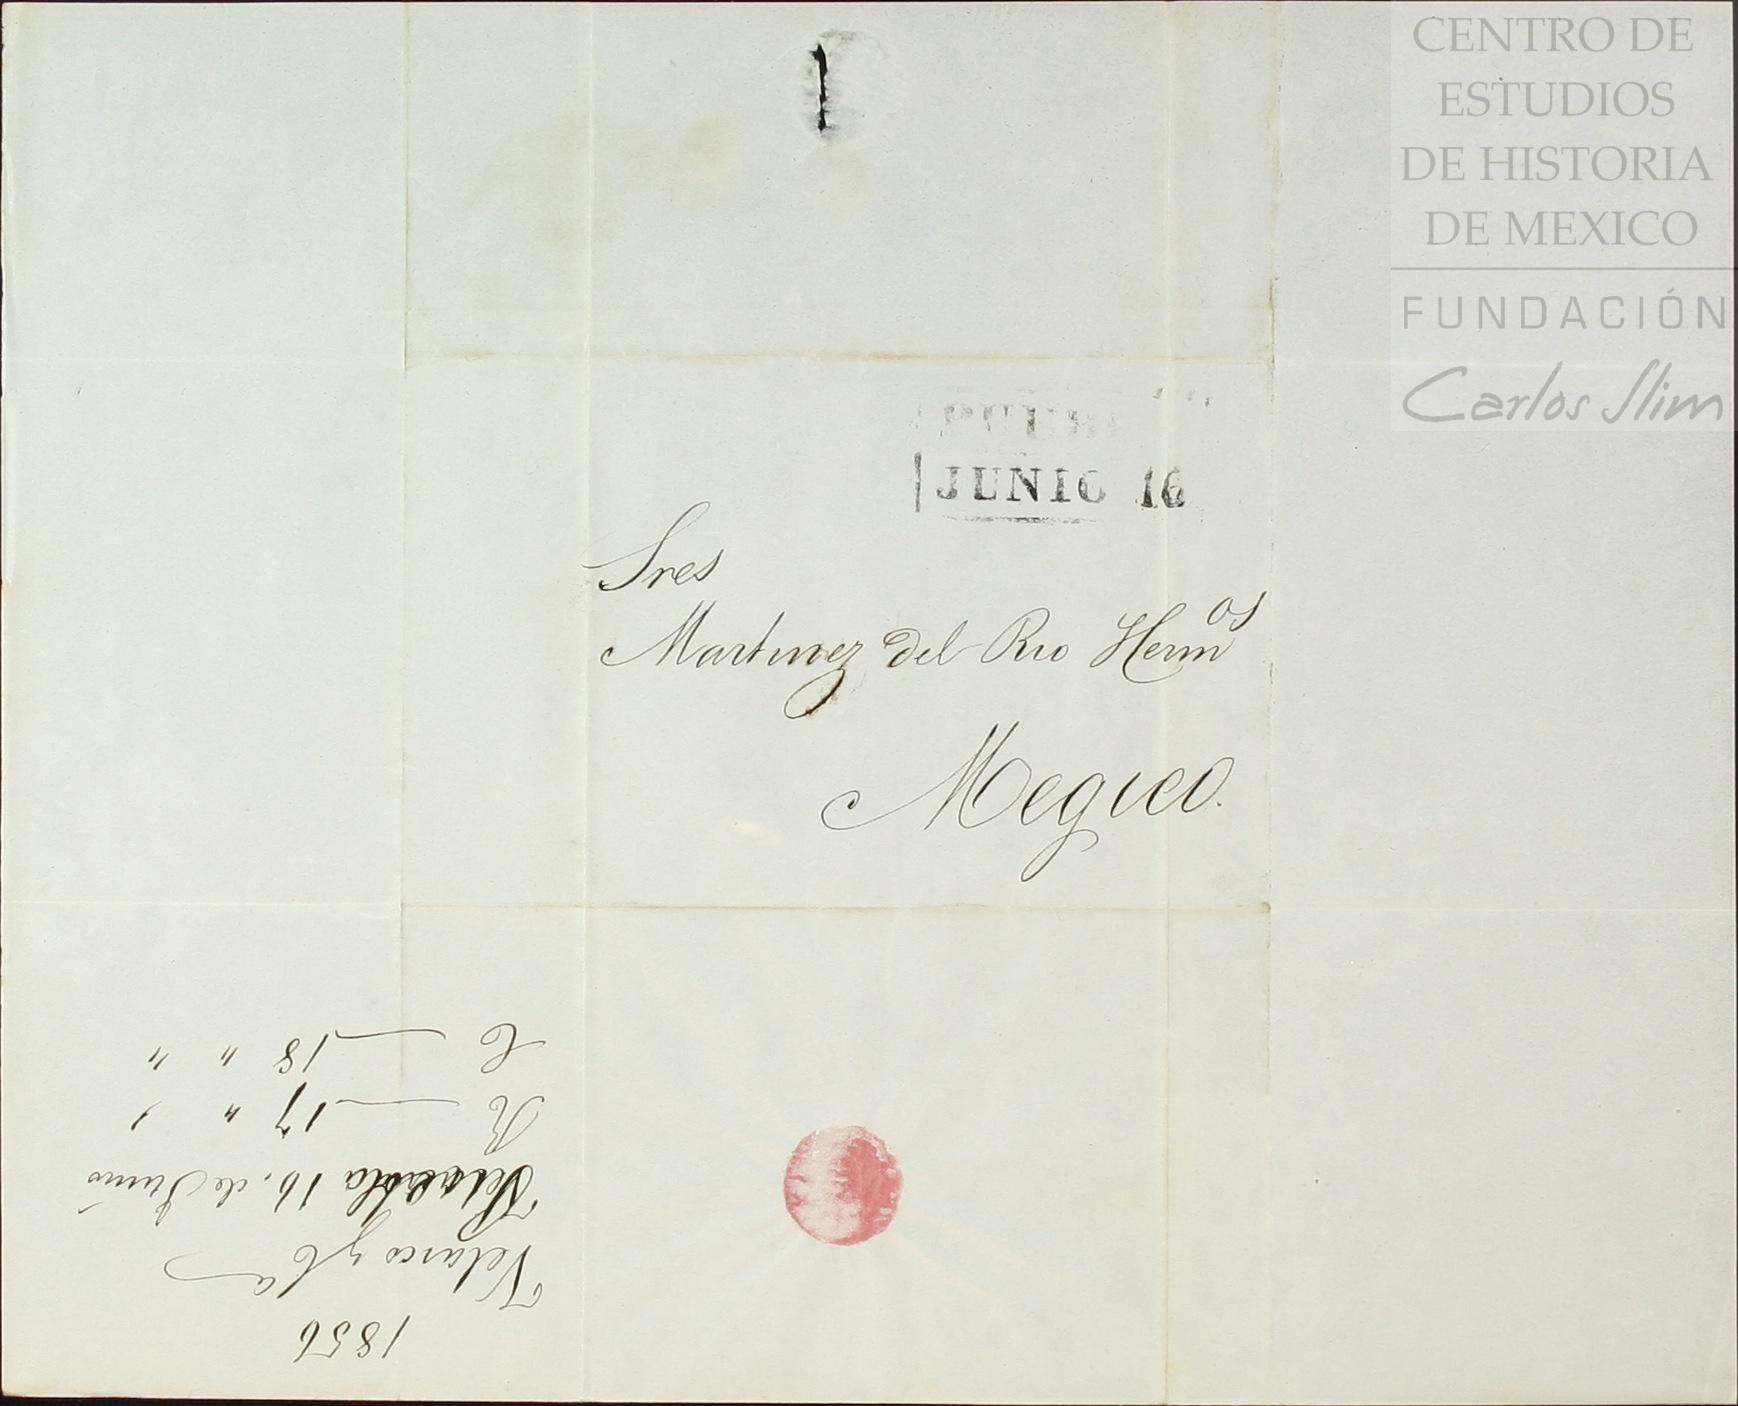 CENTRO DE
ESTUDIOS
DE HISTORIA
DE MEXICO
FUNDACIÓN
Carlos Slim
JUNIO 16
Sres
Martinez del Rio Herm^os
Megico.
1856
Velasco y C^a
16. de Junio
R — 17 " "
C — 18 " "